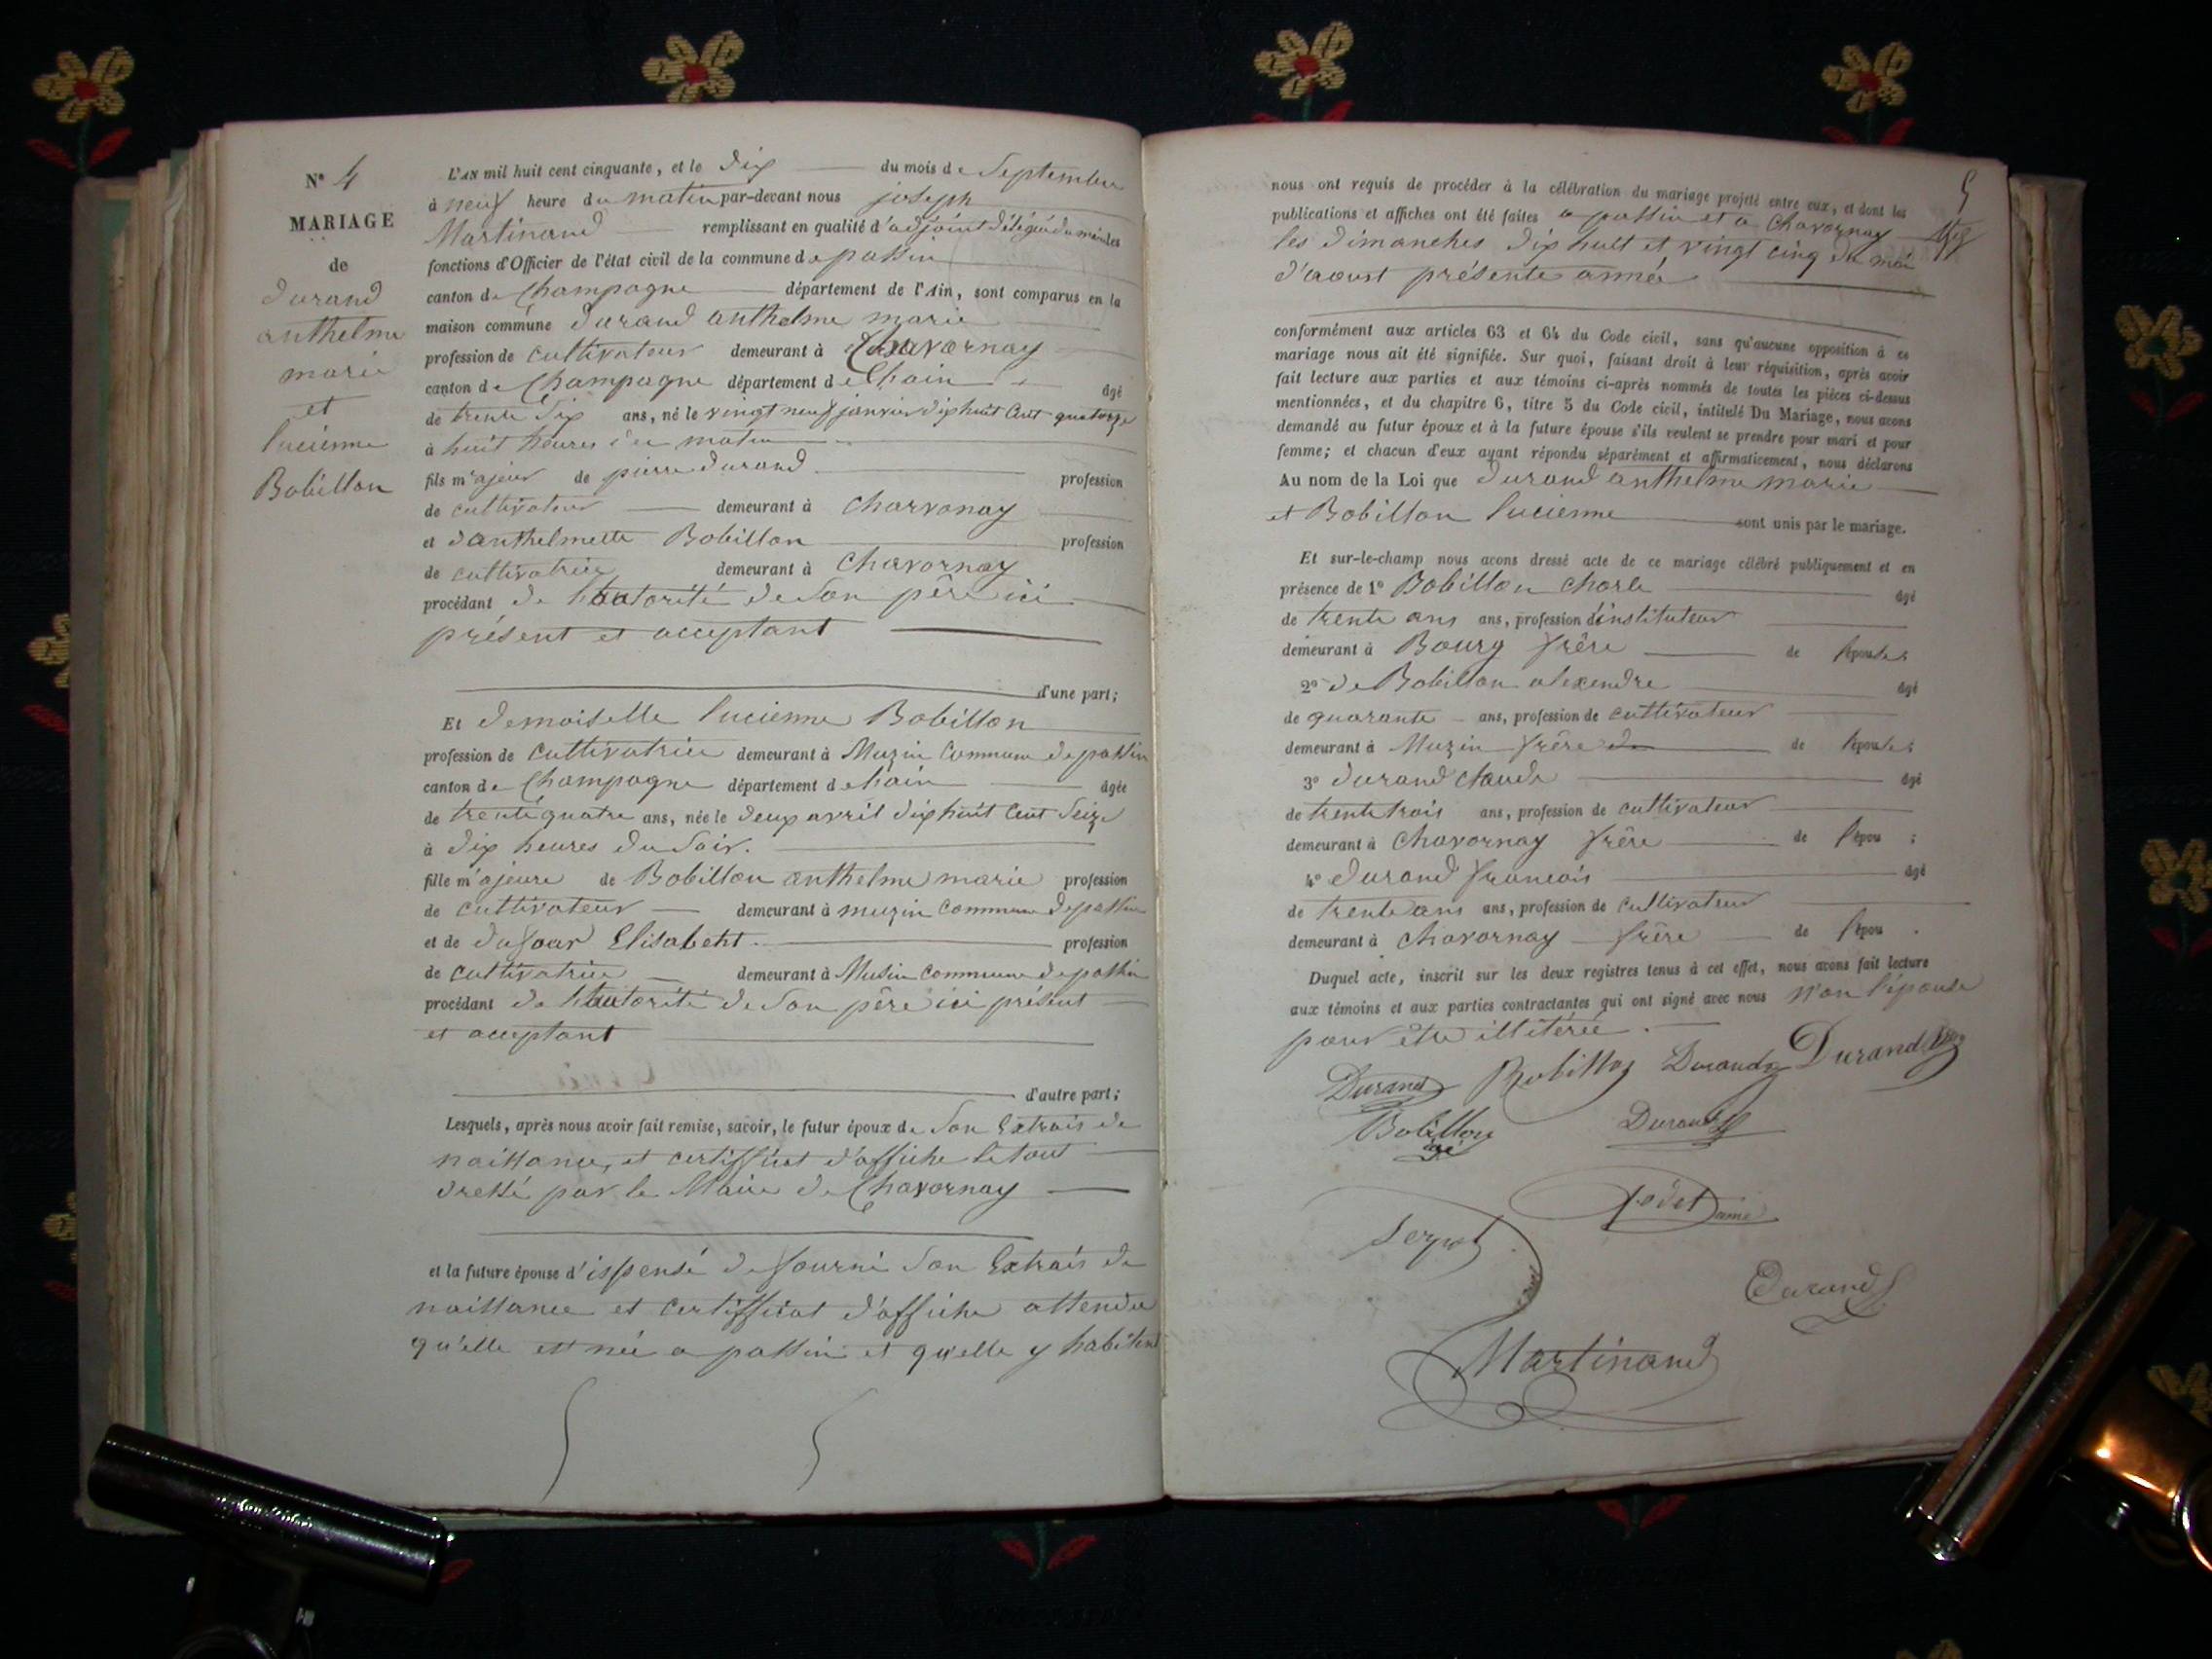 N° 4
MARIAGE
de
durand
anthelme
marie
et
lucienne
Bobillon
L'AN mil huit cent cinquante, et le dix du mois de Septembre
à neuf heure du matin par-devant nous joseph
Martinand remplissant en qualité d'adjoint délégué du maire les
fonctions d'Officier de l'état civil de la commune de passin
canton de Champagne département de l'Ain, sont comparus en la
maison commune durand anthelme marie
profession de cultivateur demeurant à Chavornay
canton de Champagne département de lhain âgé
de trente six ans, né le vingt neuf janvier dix huit cent quatorze
à huit heures du matin
fils majeur de pierre durand profession
de cultivateur demeurant à Charvonay
et danthelmette Bobillon profession
de cultivatrice demeurant à Chavornay
procédant de l'autorité de son père ici
présent et acceptant
d'une part;
Et demoiselle lucienne Bobillon
profession de cultivatrice demeurant à Muzin Commune de passin
canton de Champagne département de lhain âgée
de trente quatre ans, née le deux avril dix huit cent seize
à dix heures du soir.
fille majeure de Bobillon anthelme marie profession
de cultivateur demeurant à muzin commune de passin
et de dufour Elisabeht profession
de cultivatrice demeurant à Musin commune de passin
procédant de l'autorité de son père ici présent
et acceptant
d'autre part;
Lesquels, après nous avoir fait remise, savoir, le futur époux de son Extrais de
naissance, et certifficat d'affiche le tout
dressé par le Maire de Chavornay
et la future épouse d'ispensé de fourni son Extrais de
naissance et certifficat d'affiche attendu
qu'elle est née a passin et qu'elle y habitent
5
nous ont requis de procéder à la célébration du mariage projeté entre eux, et dont les
publications et affiches ont été faites a passin et a Chavornay
les dimanches dix huit et vingt cinq du moi
d'aoust présente année
conformément aux articles 63 et 64 du Code civil, sans qu'aucune opposition à ce
mariage nous ait été signifiée. Sur quoi, faisant droit à leur réquisition, après avoir
fait lecture aux parties et aux témoins ci-après nommés de toutes les pièces ci-dessus
mentionnées, et du chapitre 6, titre 5 du Code civil, intitulé Du Mariage, nous avons
demandé au futur époux et à la future épouse s'ils veulent se prendre pour mari et pour
femme; et chacun d'eux ayant répondu séparément et affirmativement, nous déclarons
Au nom de la Loi que durand anthelme marie
et Bobillon lucienne sont unis par le mariage.
Et sur-le-champ nous avons dressé acte de ce mariage célébré publiquement et en
présence de 1° Bobillon charle âgé
de trente ans ans, profession d'instituteur
demeurant à Bourg frêre de l'épouse;
2° de Bobillon alexendre âgé
de quarante ans, profession de cultivateur
demeurant à Muzin frêre de l'épouse;
3° durand claude âgé
de trente trois ans, profession de cultivateur
demeurant à Chavornay frêre de l'épou ;
4° durand francois âgé
de trente ans ans, profession de cultivateur
demeurant à chavornay frêre de l'épou .
Duquel acte, inscrit sur les deux registres tenus à cet effet, nous avons fait lecture
aux témoins et aux parties contractantes qui ont signé avec nous n'on l'épouse
pour être illitérée.
Durand Bobillon Durand Durand
Bobillon Durand
Durand
Martinand